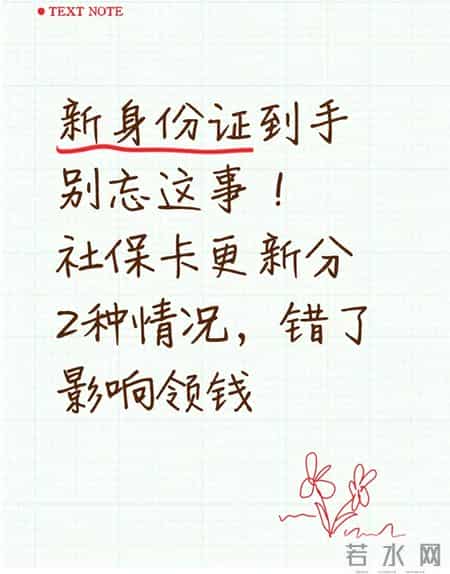 TEXT NOTE
新身份证到手
别忘这事！
社保卡更新分
2种情况，错了
影响领钱
若水网